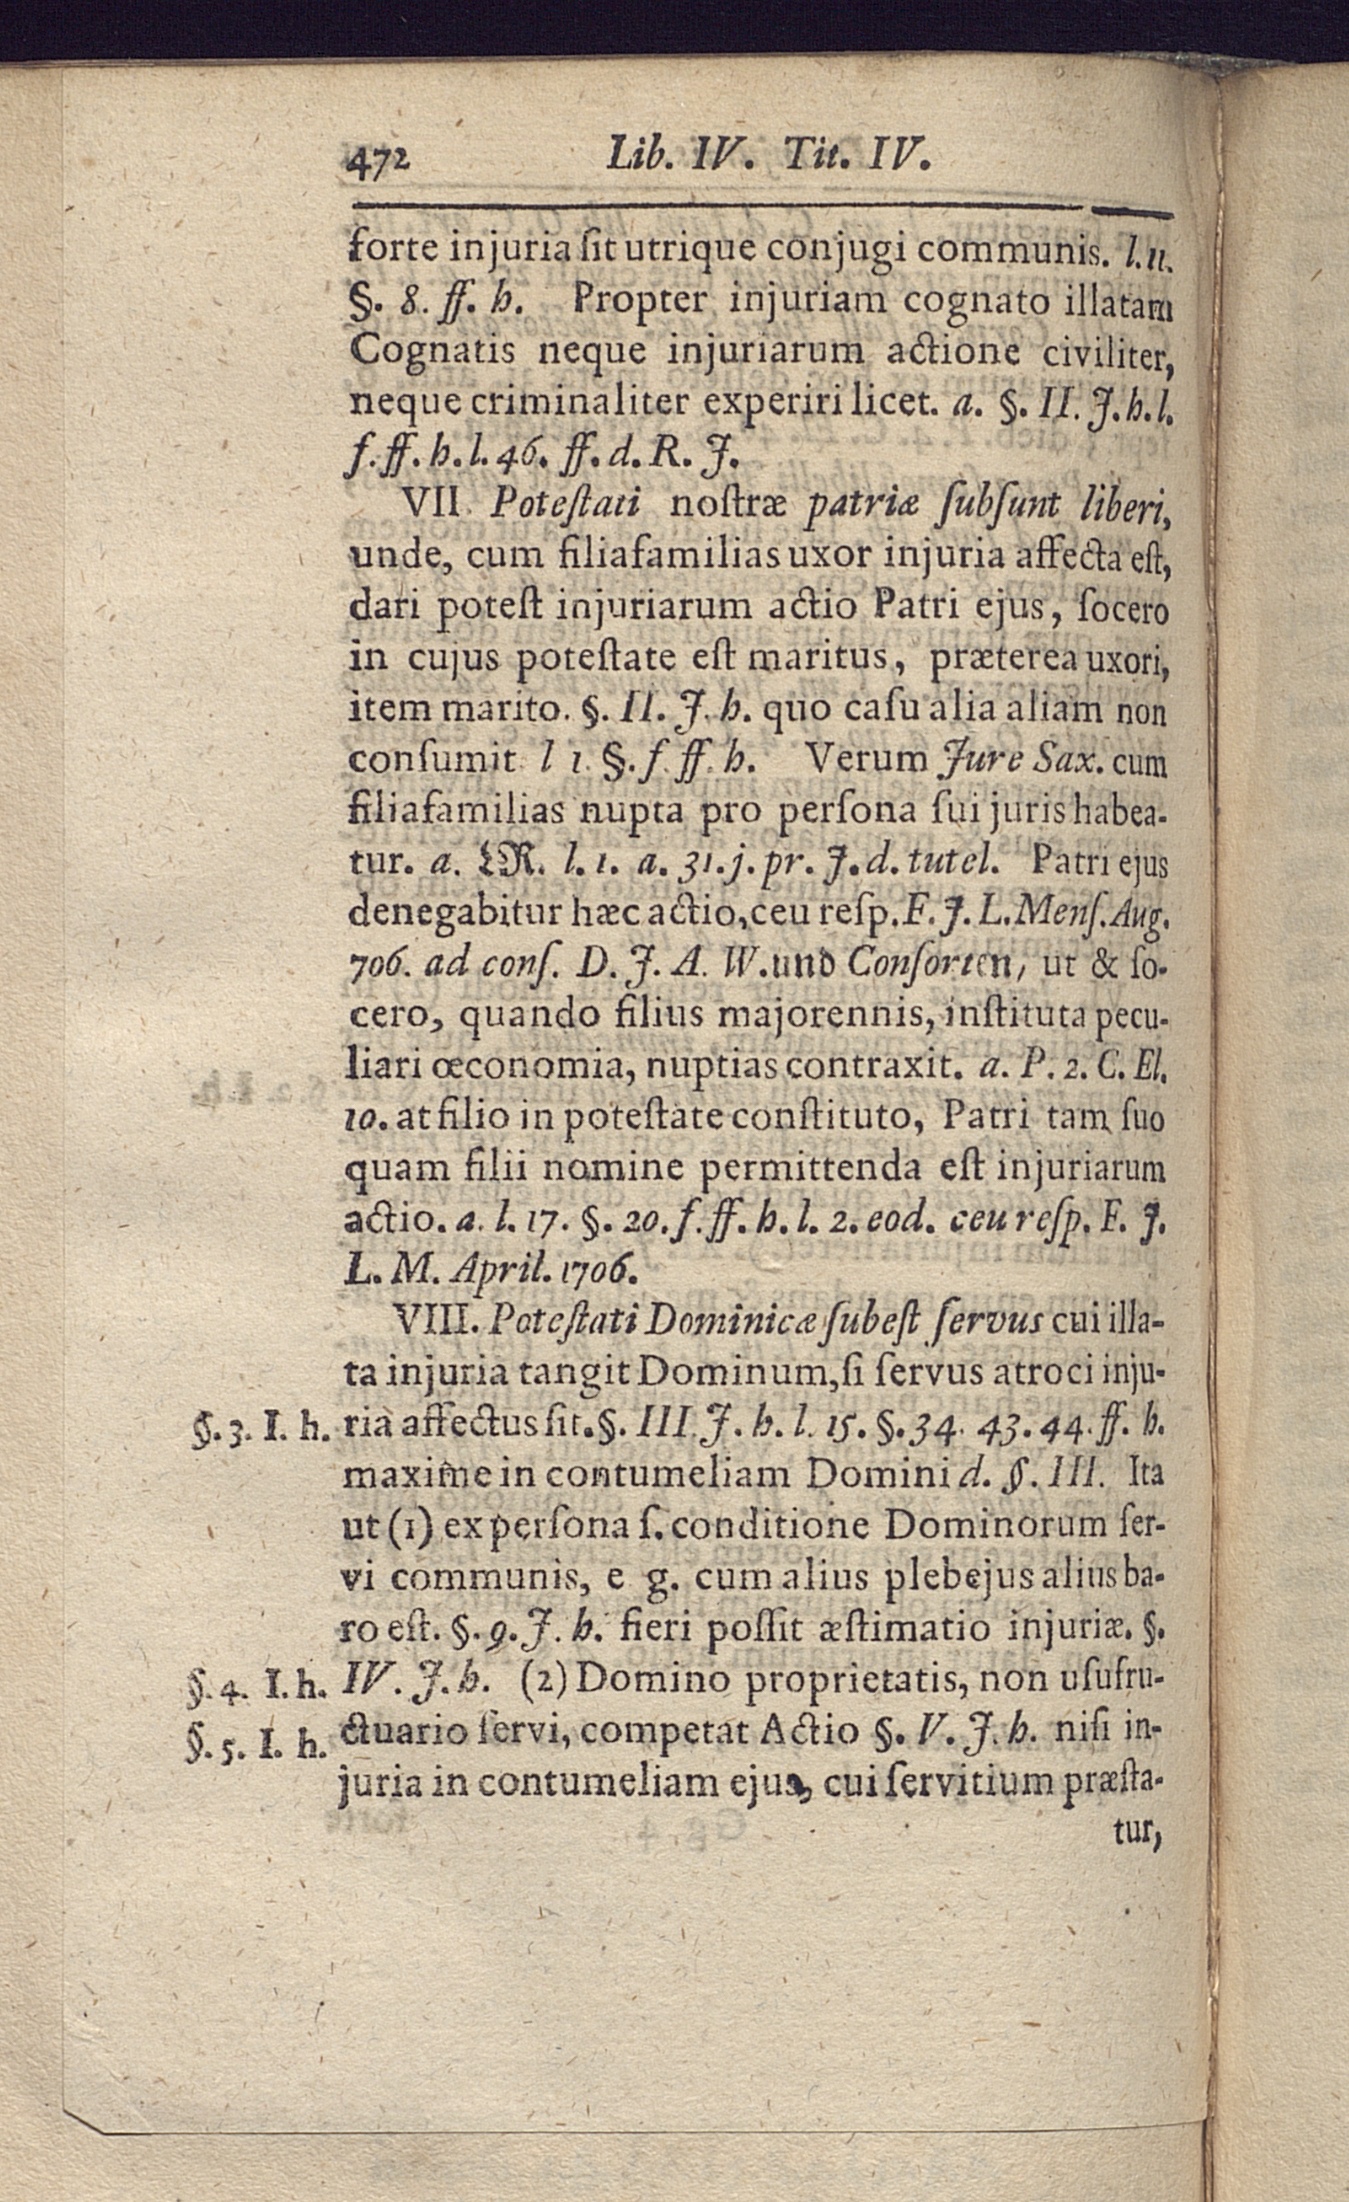 472 Lib. IV. Tit. IV.
forte injuria ſit utrique conjugi communis. l. 11.
§. 8. ff. h. Propter injuriam cognato illatam
Cognatis neque injuriarum actione civiliter,
neque criminaliter experiri licet. a. §. II. J. h. l.
f. ff. h. l. 46. ff. d. R. J.
VII. Poteſtati noſtræ patriæ ſubſunt liberi,
unde, cum filiafamilias uxor injuria affecta eſt,
dari poteſt injuriarum actio Patri ejus, ſocero
in cujus poteſtate eſt maritus, præterea uxori,
item marito. §. II. J. h. quo caſu alia aliam non
conſumit l 1. §. f. ff. h. Verum Jure Sax. cum
filiafamilias nupta pro perſona ſui juris habea-
tur. a. LR. l. 1. a. 31. j. pr. J. d. tutel. Patri ejus
denegabitur hæc actio, ceu reſp. F. J. L. Menſ. Aug.
706. ad conſ. D. J. A. W. und Conſorten, ut & ſo-
cero, quando filius majorennis, inſtituta pecu-
liari œconomia, nuptias contraxit. a. P. 2. C. El.
10. at filio in poteſtate conſtituto, Patri tam ſuo
quam filii nomine permittenda eſt injuriarum
actio. a. l. 17. §. 20. f. ff. h. l. 2. eod. ceu reſp. F. J.
L. M. April. 1706.
VIII. Poteſtati Dominicæ ſubeſt ſervus cui illa-
ta injuria tangit Dominum, ſi ſervus atroci inju-
§. 3. I. h. ria affectus ſit. §. III. J. h. l. 15. §. 34. 43. 44. ff. h.
maxime in contumeliam Domini d. §. III. Ita
ut (1) ex perſona ſ. conditione Dominorum ſer-
vi communis, e g. cum alius plebejus alius ba-
ro eſt. §. 9. J. h. fieri poſſit æſtimatio injuriæ. §.
§. 4. I. h. IV. J. h. (2) Domino proprietatis, non uſufru-
§. 5. I. h. ctuario ſervi, competat Actio §. V. J. h. niſi in-
juria in contumeliam ejus, cui ſervitium præſta-
tur,